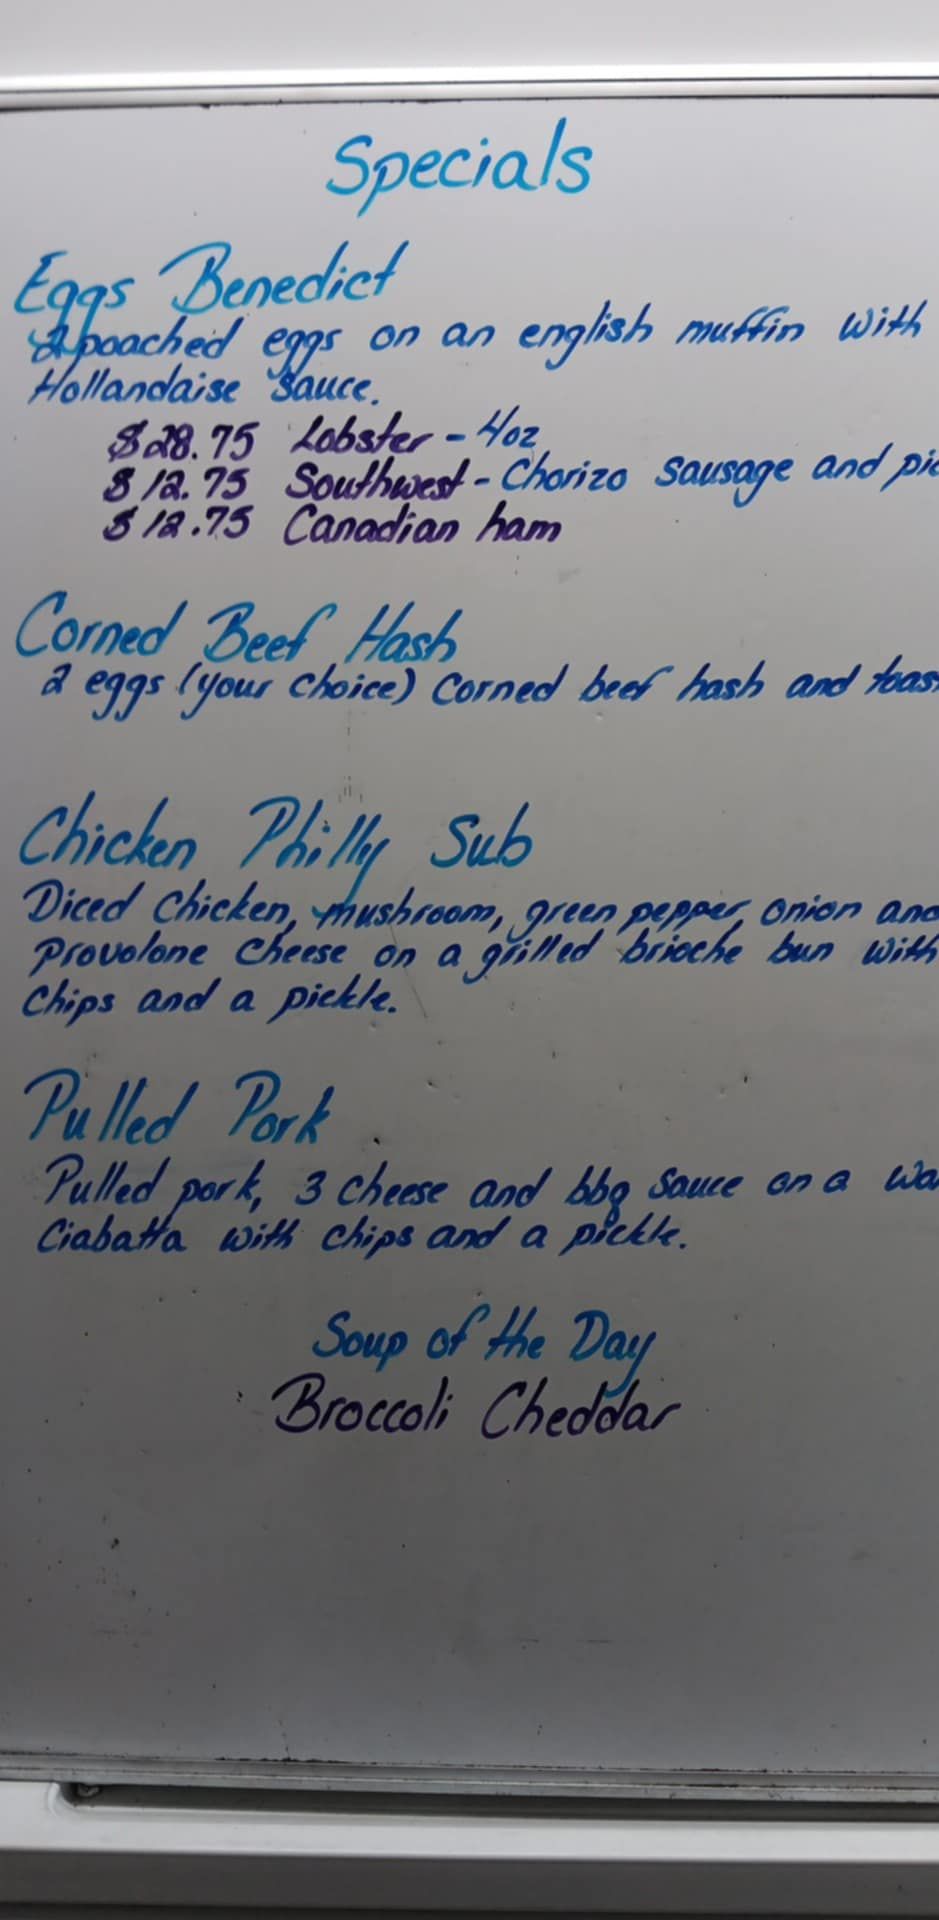 Specials
Eggs Benedict
2 poached eggs on an english muffin with
Hollandaise Sauce.
$28.75 Lobster - 4oz
$12.75 Southwest - Chorizo Sausage and
$12.75 Canadian ham
Corned Beef Hash
2 eggs (your choice) Corned beef hash and
Chicken Philly Sub
Diced Chicken, mushroom, green pepper, onion and
Provolone Cheese on a grilled brioche bun with
Chips and a pickle.
Pulled Pork
Pulled pork, 3 Cheese and bbq Sauce on a
Ciabatta with chips and a pickle.
Soup of the Day
Broccoli Cheddar